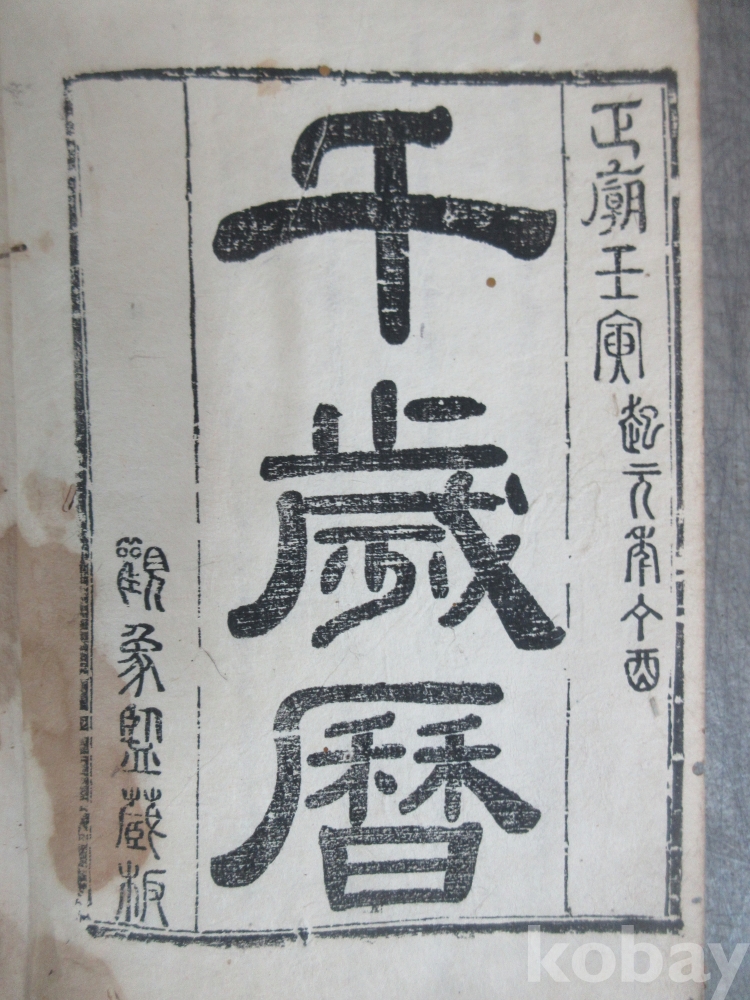 正廟壬寅起元年丁酉
千歲曆
觀象監藏板
kobay